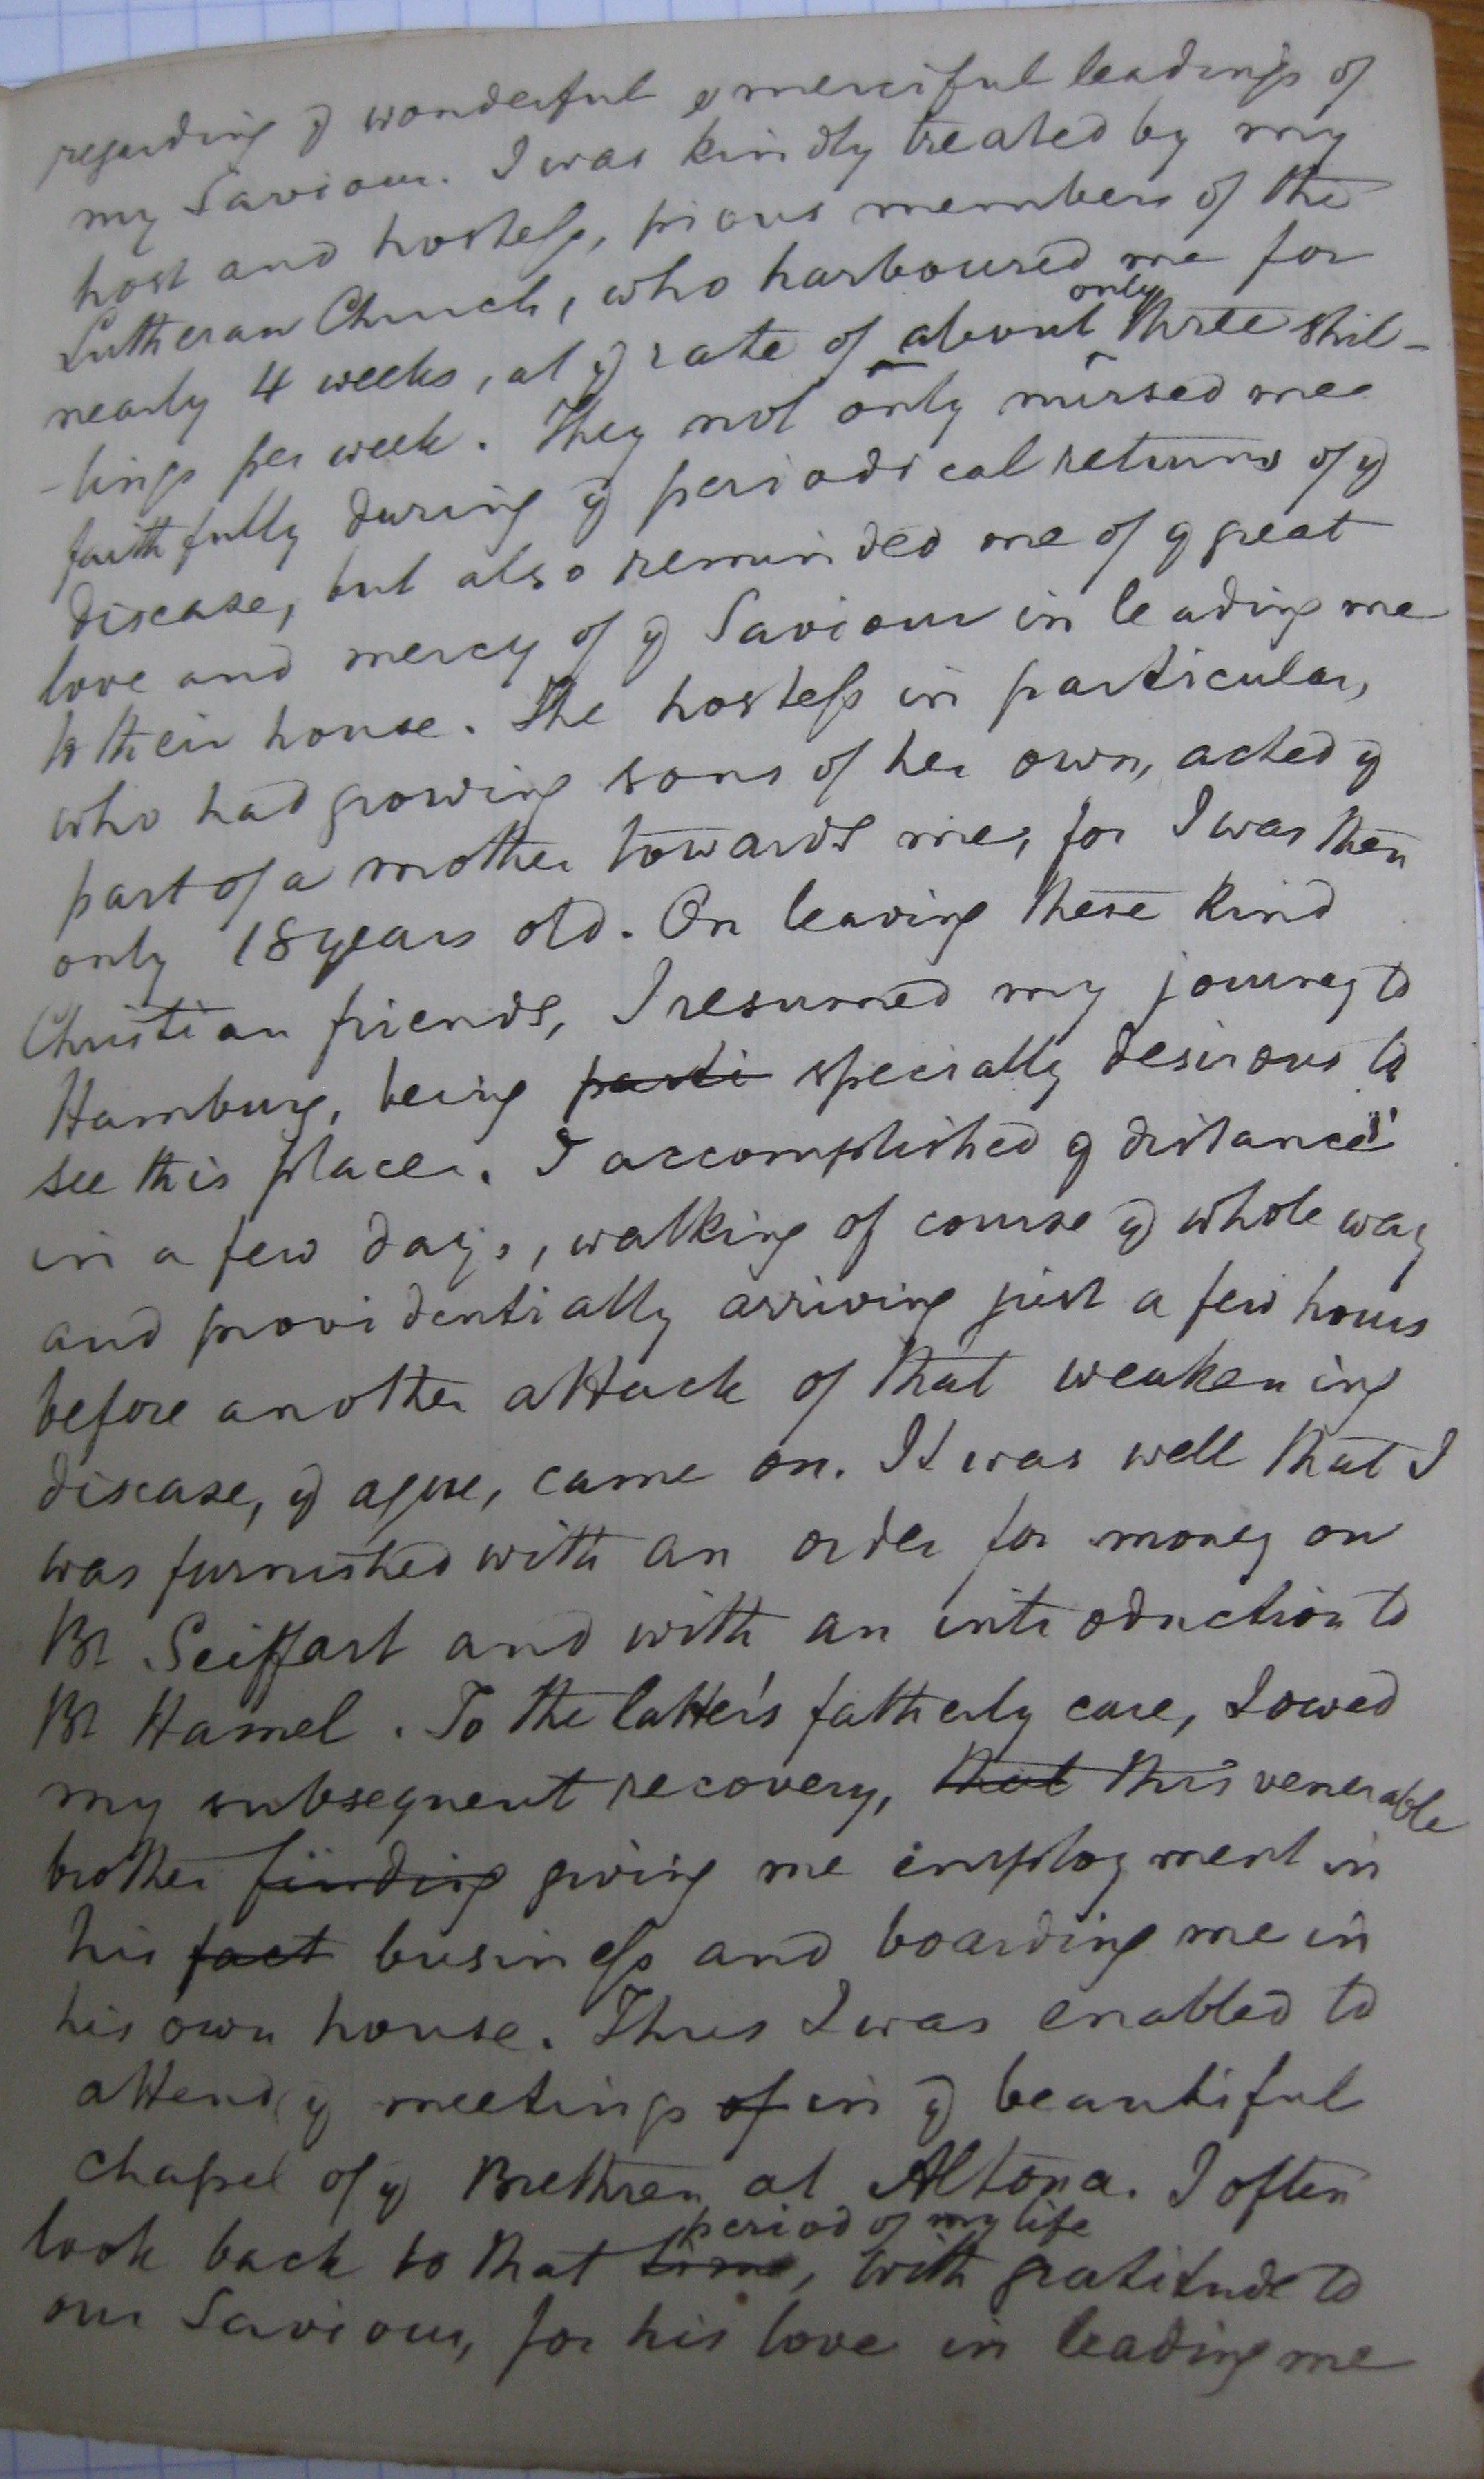 regarding ye wonderful & merciful leadings of
my Saviour. I was kindly treated by my
host and hostess, pious members of the
Lutheran Church, who harboured me for
only
nearly 4 weeks, at ye rate of about three shil-
-lings per week. They not only nursed me
faithfully during ye periodical returns of ye
disease, but also reminded me of ye great
love and mercy of ye Saviour in leading me
to their house. The hostess in particular,
who had growing sons of her own, acted ye
part of a mother towards me, for I was then
only 18 years old. On leaving these kind
Christian friends, I resumed my journey to
Hamburg, being parti specially desirous to
see this place. I accomplished ye distance
in a few days, walking of course ye whole way
and providentially arriving just a few hours
before another attack of that weakening
disease, ye ague, came on. It was well that I
was furnished with an order for money on
Br Seiffart and with an introduction to
Br Hamel. To the latter's fatherly care, I owed
my subsequent recovery, that this venerable
brother finding giving me employment in
his fact business and boarding me in
his own house. Thus I was enabled to
attend ye meetings of in ye beautiful
chapel of ye Brethren at Altona. I often
period of my life
look back to that time, with gratitude to
our Saviour, for his love in leading me